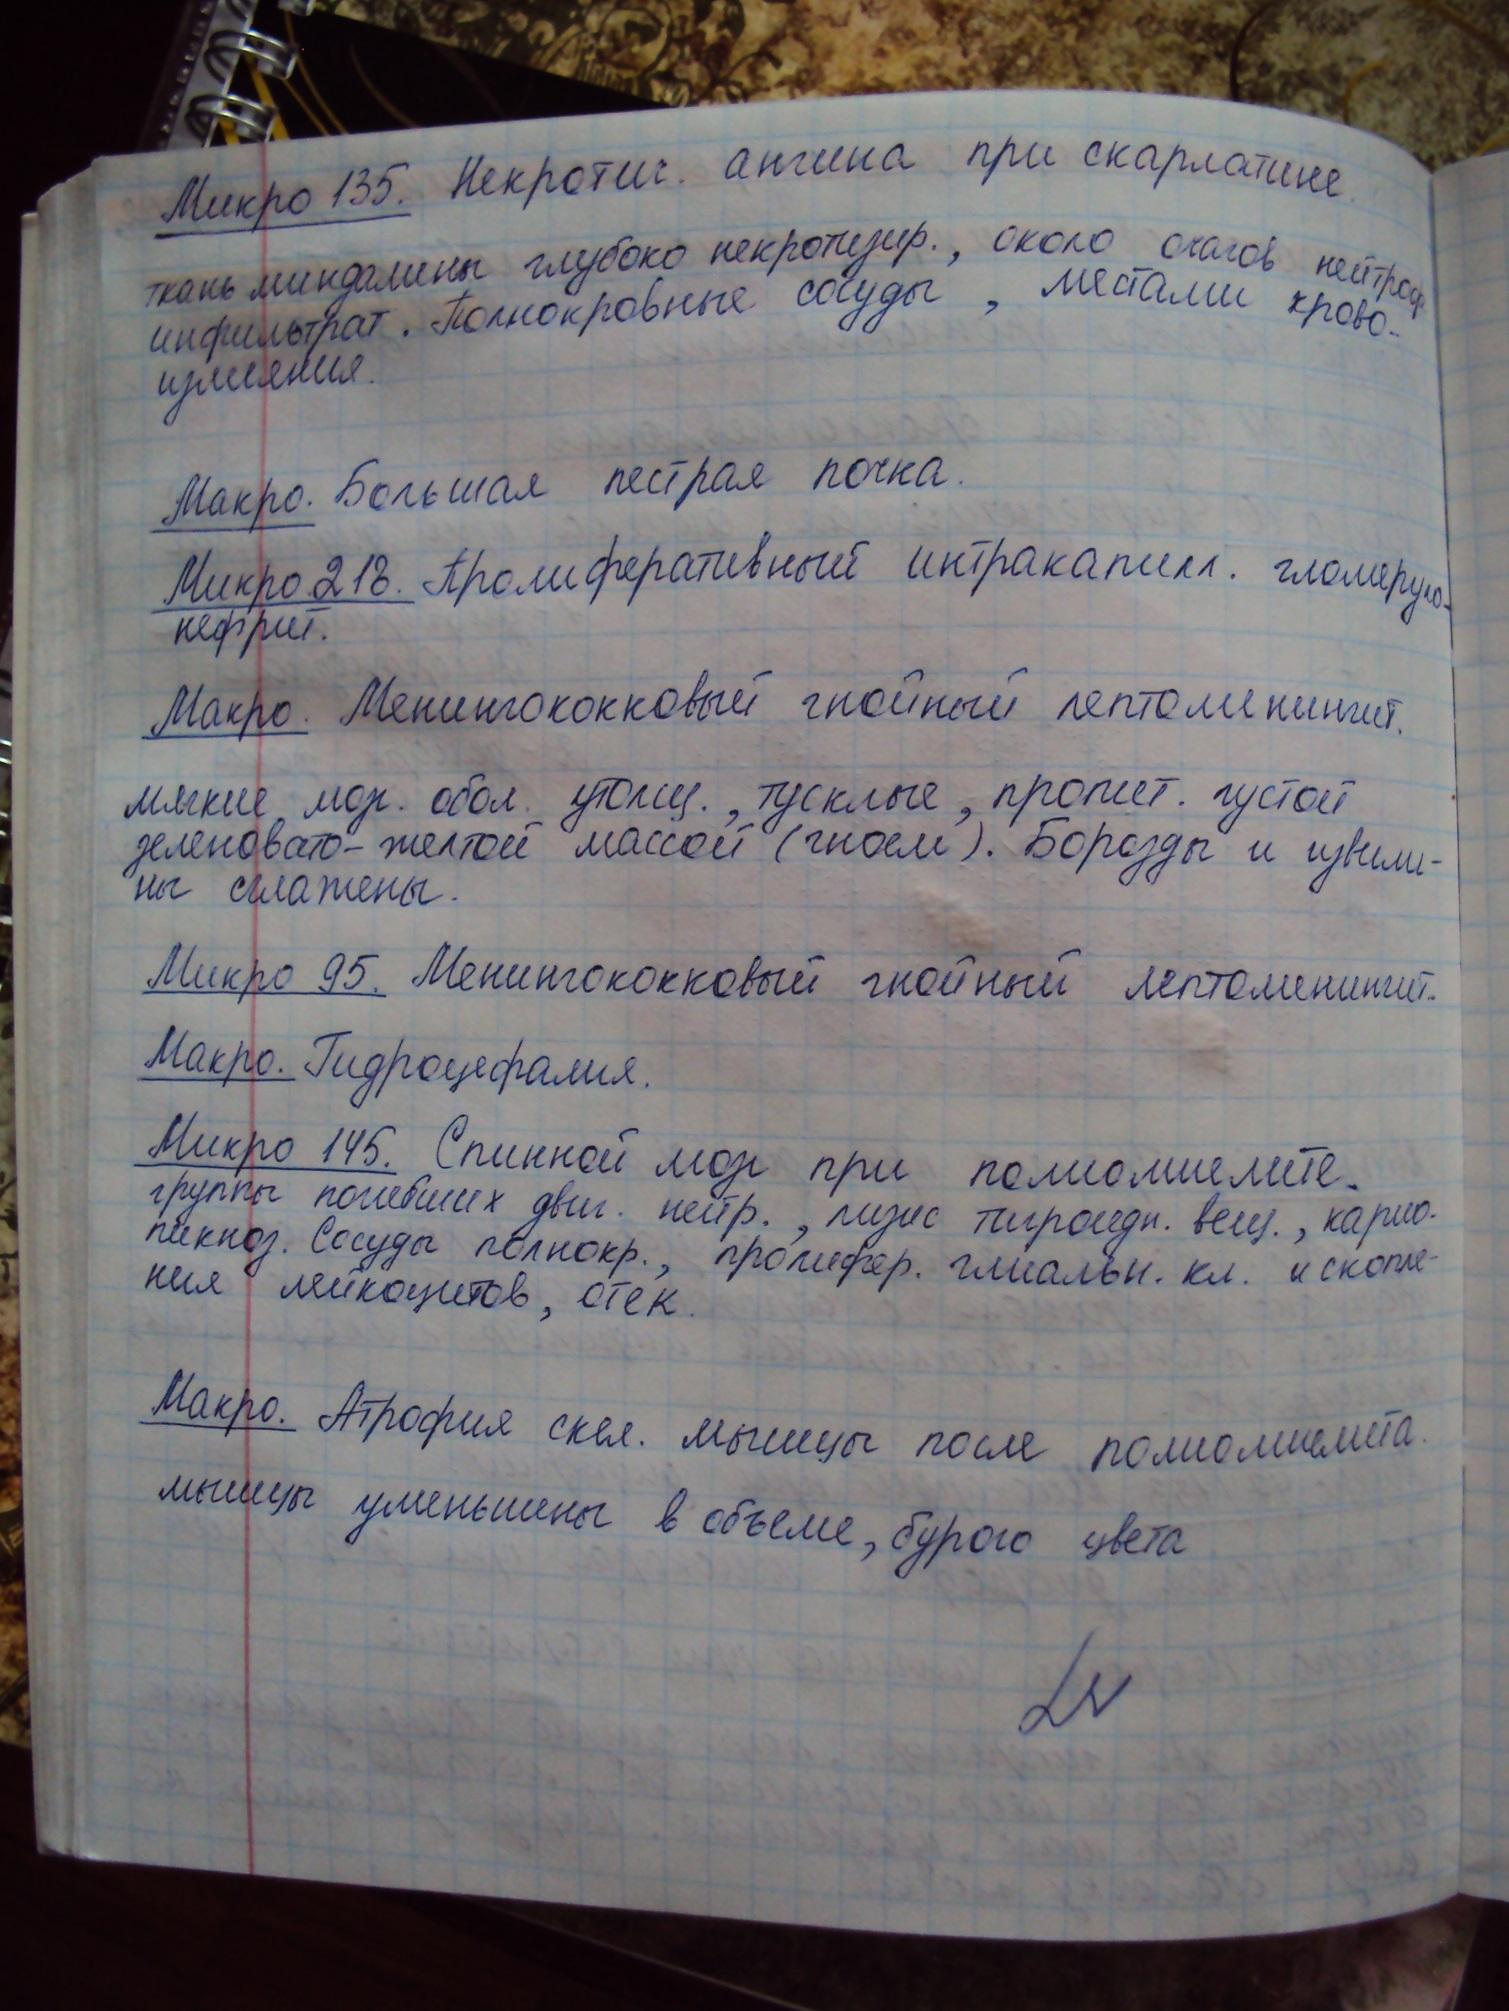 Микро 135. Некротич. ангина при скарлатине.
ткань миндалины глубоко некротизир., около очагов нейтроф.
инфильтрат. Полнокровные сосуды, местами крово-
излияния.
Макро. Большая пестрая почка.
Микро 218. Пролиферативный интракапилл. гломеруло-
нефрит.
Макро. Менингококковый гнойный лептоменингит.
мягкие мозг. обол. утолщ., тусклые, пропит. густой
зеленовато-желтой массой (гноем). Борозды и извили-
ны сглажены.
Микро 95. Менингококковый гнойный лептоменингит.
Макро. Гидроцефалия.
Микро 145. Спинной мозг при полиомиелите.
группы погибших двиг. нейр., лизис тигроидн. вещ., карио-
пикноз. Сосуды полнокр., пролифер. глиальн. кл. и скопле-
ния лейкоцитов, отек.
Макро. Атрофия скел. мышцы после полиомиелита.
мышцы уменьшены в объеме, бурого цвета